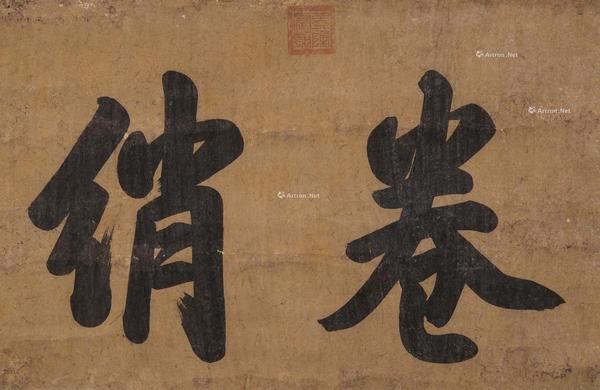 卷綃
Artron.Net
Artron.Net
Artron.Net